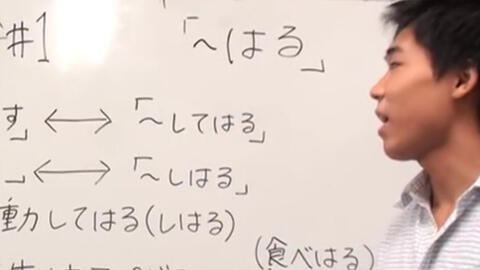 #1 「～はる」
す」 ⟷ 「～してはる」
」 ⟷ 「～しはる」
動してはる(しはる)
(食べはる)